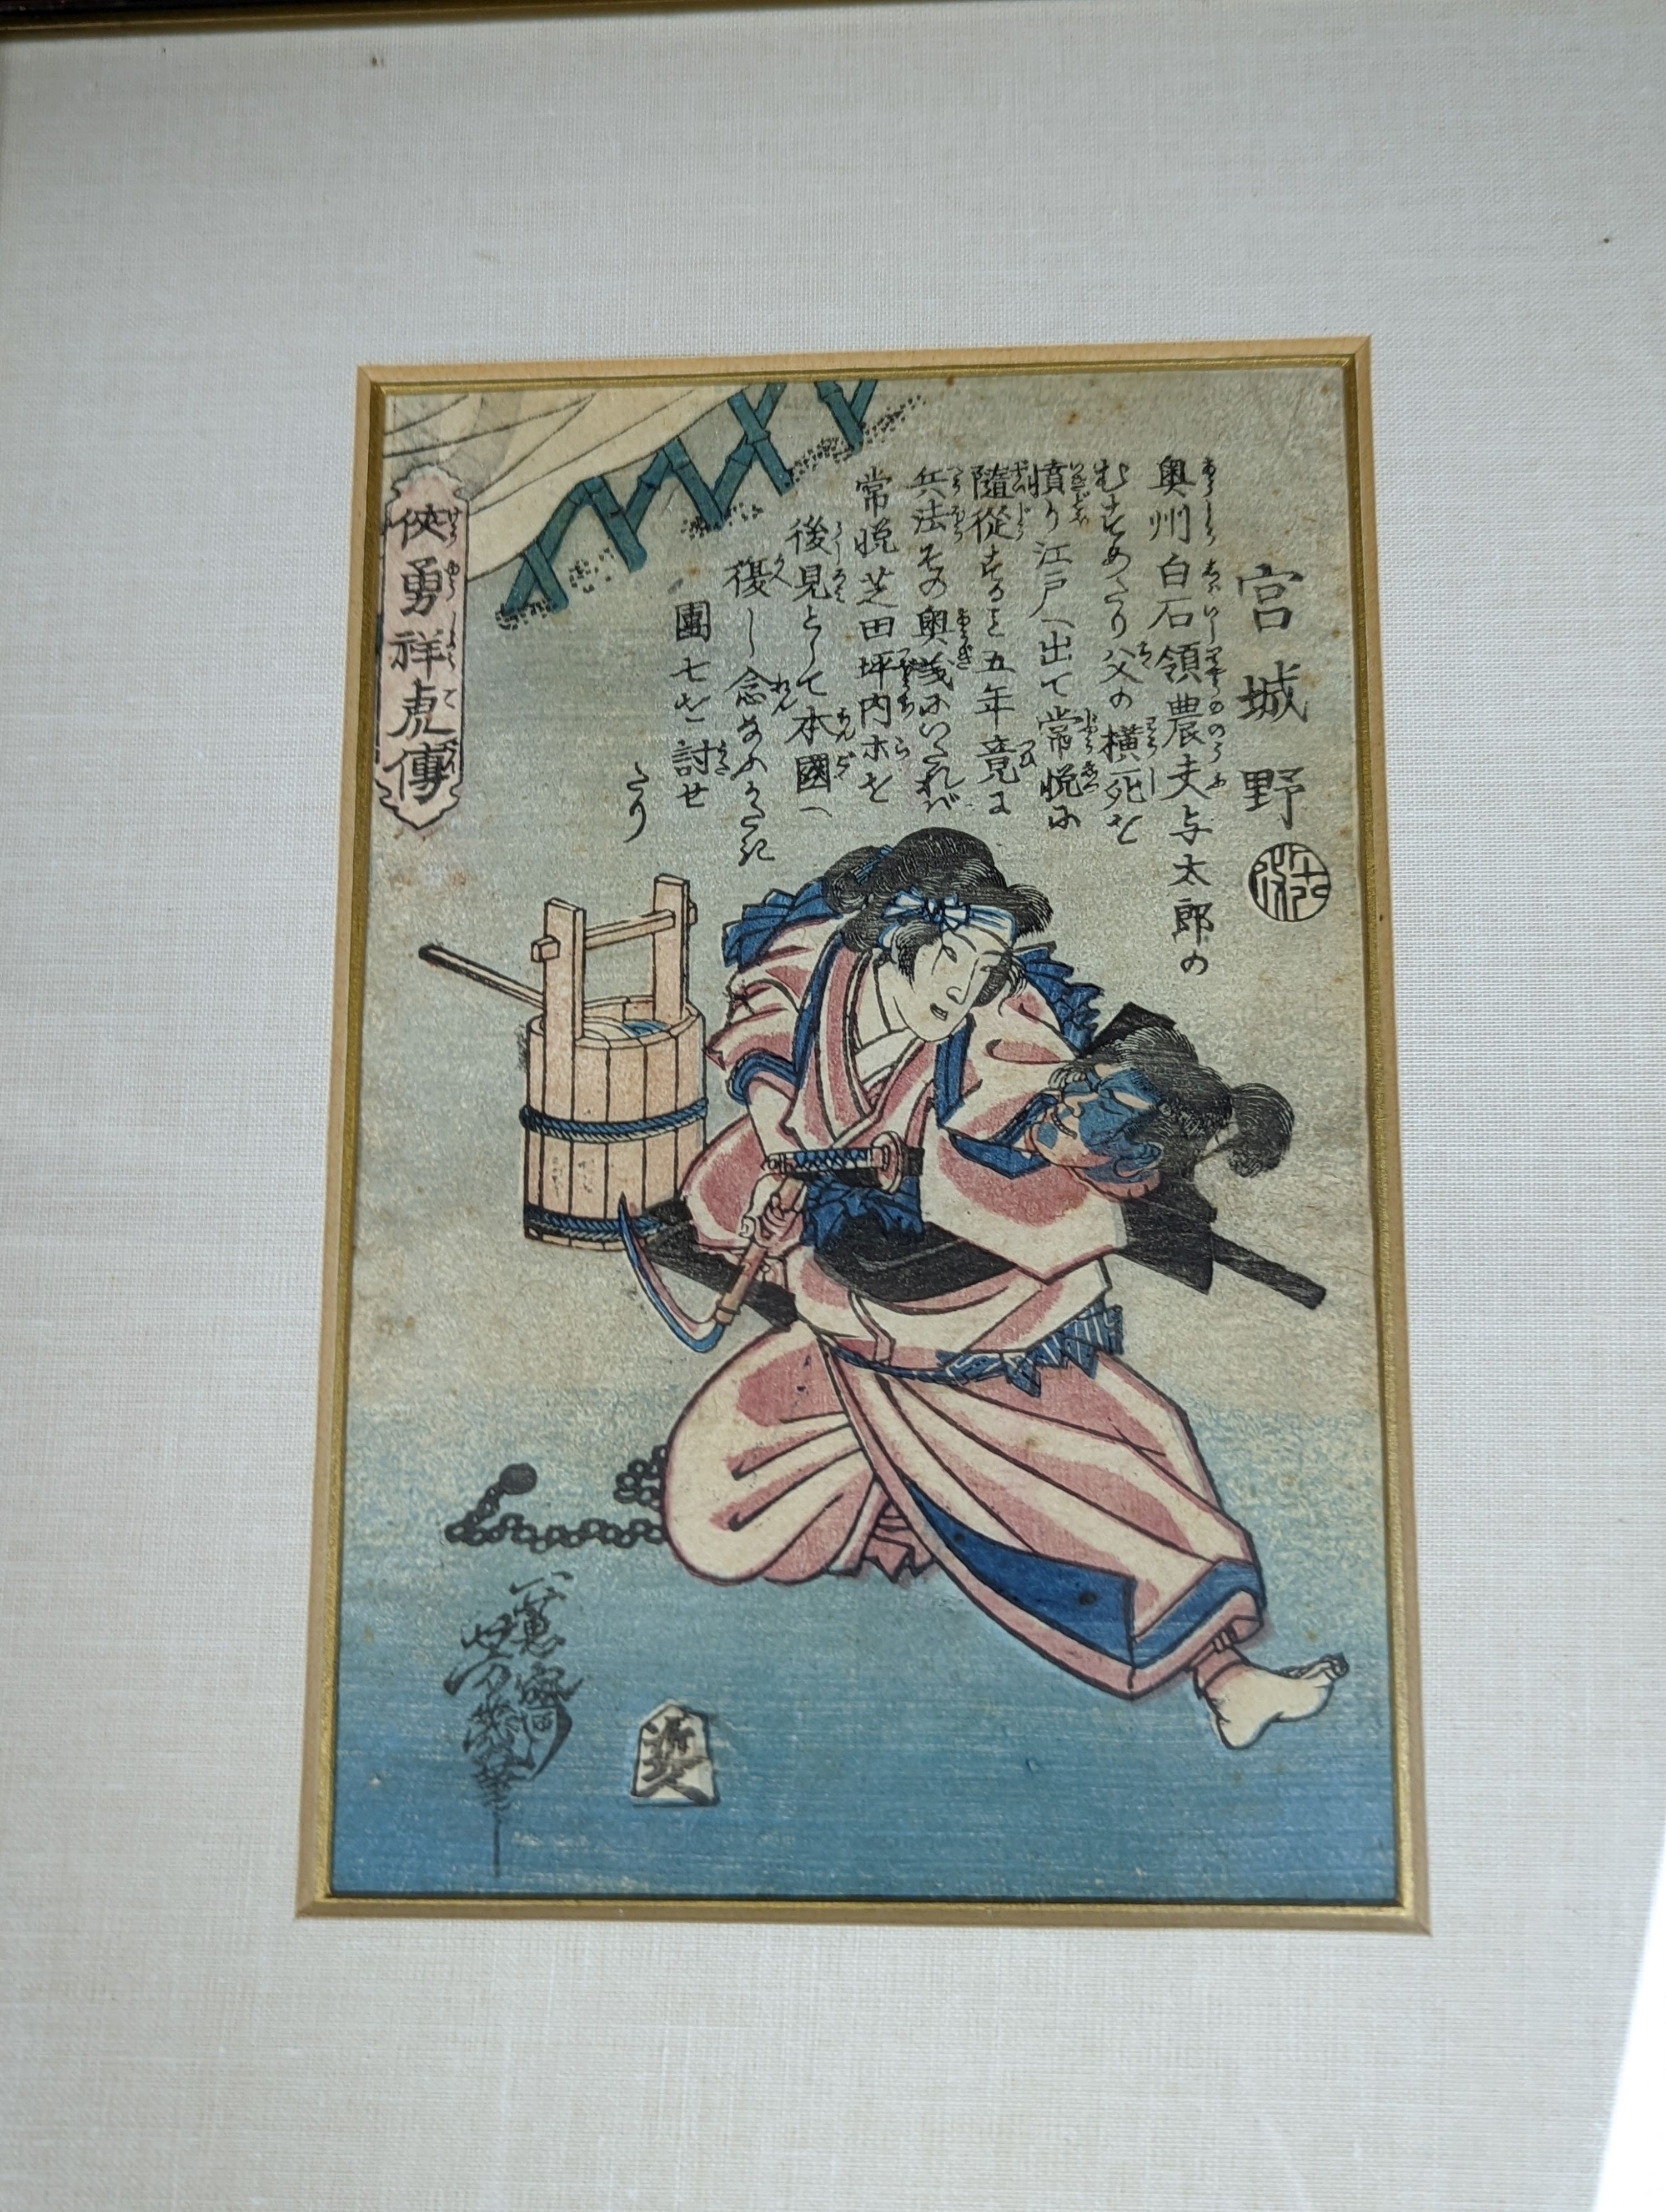 宮城野
奥州白石領農夫与太郎の
むすめなり父の横死を
憤り江戸へ出て常悦に
随従する事五年竟に
兵法その奥義にいたれバ
常悦芝田坪内ホを
後見として本國へ
復し念なふかたき
團七を討せ
たり
侠勇祥虎傳
一蕙齋
芳幾筆